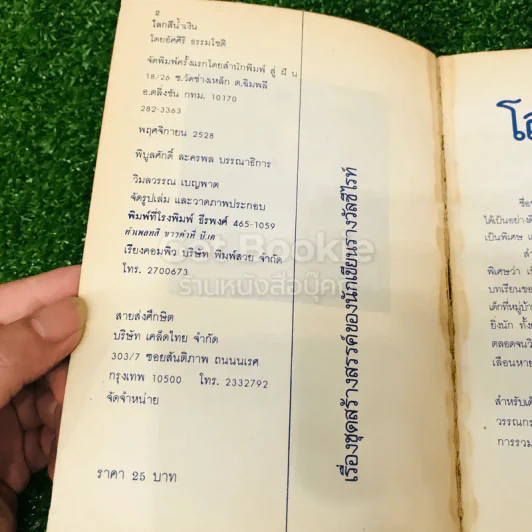 2
โลกสีน้ำเงิน
โดยอัศศิริ ธรรมโชติ
จัดพิมพ์ครั้งแรกโดยสำนักพิมพ์ สู่ ฝั น
18/26 ซ.วัดช่างเหล็ก ต.ฉิมพลี
อ.ตลิ่งชัน กทม. 10170
282-3363
พฤศจิกายน 2528
พิบูลศักดิ์ ละครพล บรรณาธิการ
วิมลวรรณ เบญพาด
จัดรูปเล่ม และวาดภาพประกอบ
พิมพ์ที่โรงพิมพ์ ธีรพงศ์ 465-1059
ทำเพลทสี
เรียงคอมพิว บริษัท พิมพ์สวย จำกัด
โทร. 2700673
สายส่งศึกษิต
บริษัท เคล็ดไทย จำกัด
303/7 ซอยสันติภาพ ถนนนเรศ
กรุงเทพ 10500 โทร. 2332792
จัดจำหน่าย
ราคา 25 บาท
เรื่องชุดสร้างสรรค์ของนักเขียนรางวัลซีไรท์
Get Bookie
ร้านหนังสือบุ๊คกี้
ได้เป็นอย่างดี
เป็นพิเศษ
พิเศษว่า
บทเรียนของ
เด็กที่หมู่บ้าน
ยิ่งนัก ทั้ง
ตลอดจนวิ
เลือนหาย
สำหรับเด็
วรรณกร
การรวม